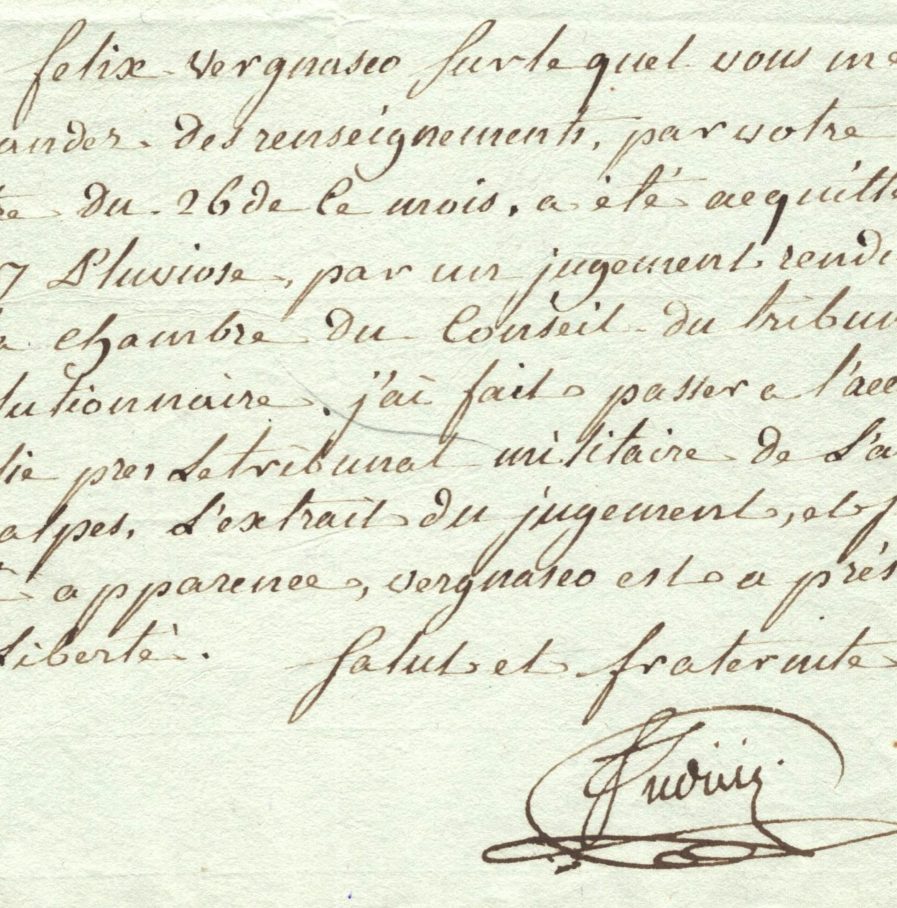 felix vergnasco sur le quel vous me
ander des renseignements, par votre
du 26 de ce mois, a été acquitt
7 Pluviose, par un jugement rendu
a chambre du Conseil du tribun
lutionnaire. j'ai fait passer a l'acc
lie pres Le tribunal militaire de L'a
alpes, L'extrait du jugement, et
apparence, vergnasco est a prés
Liberté. Salut et fraternité